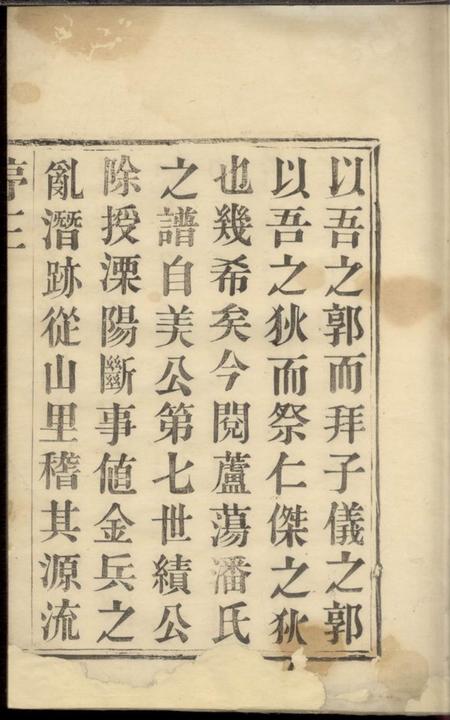 以吾之郭而拜子儀之郭
以吾之狄而祭仁傑之狄
也幾希矣今閱蘆蕩潘氏
之譜自美公第七世績公
除授溧陽斷事値金兵之
亂潛跡從山里稽其源流